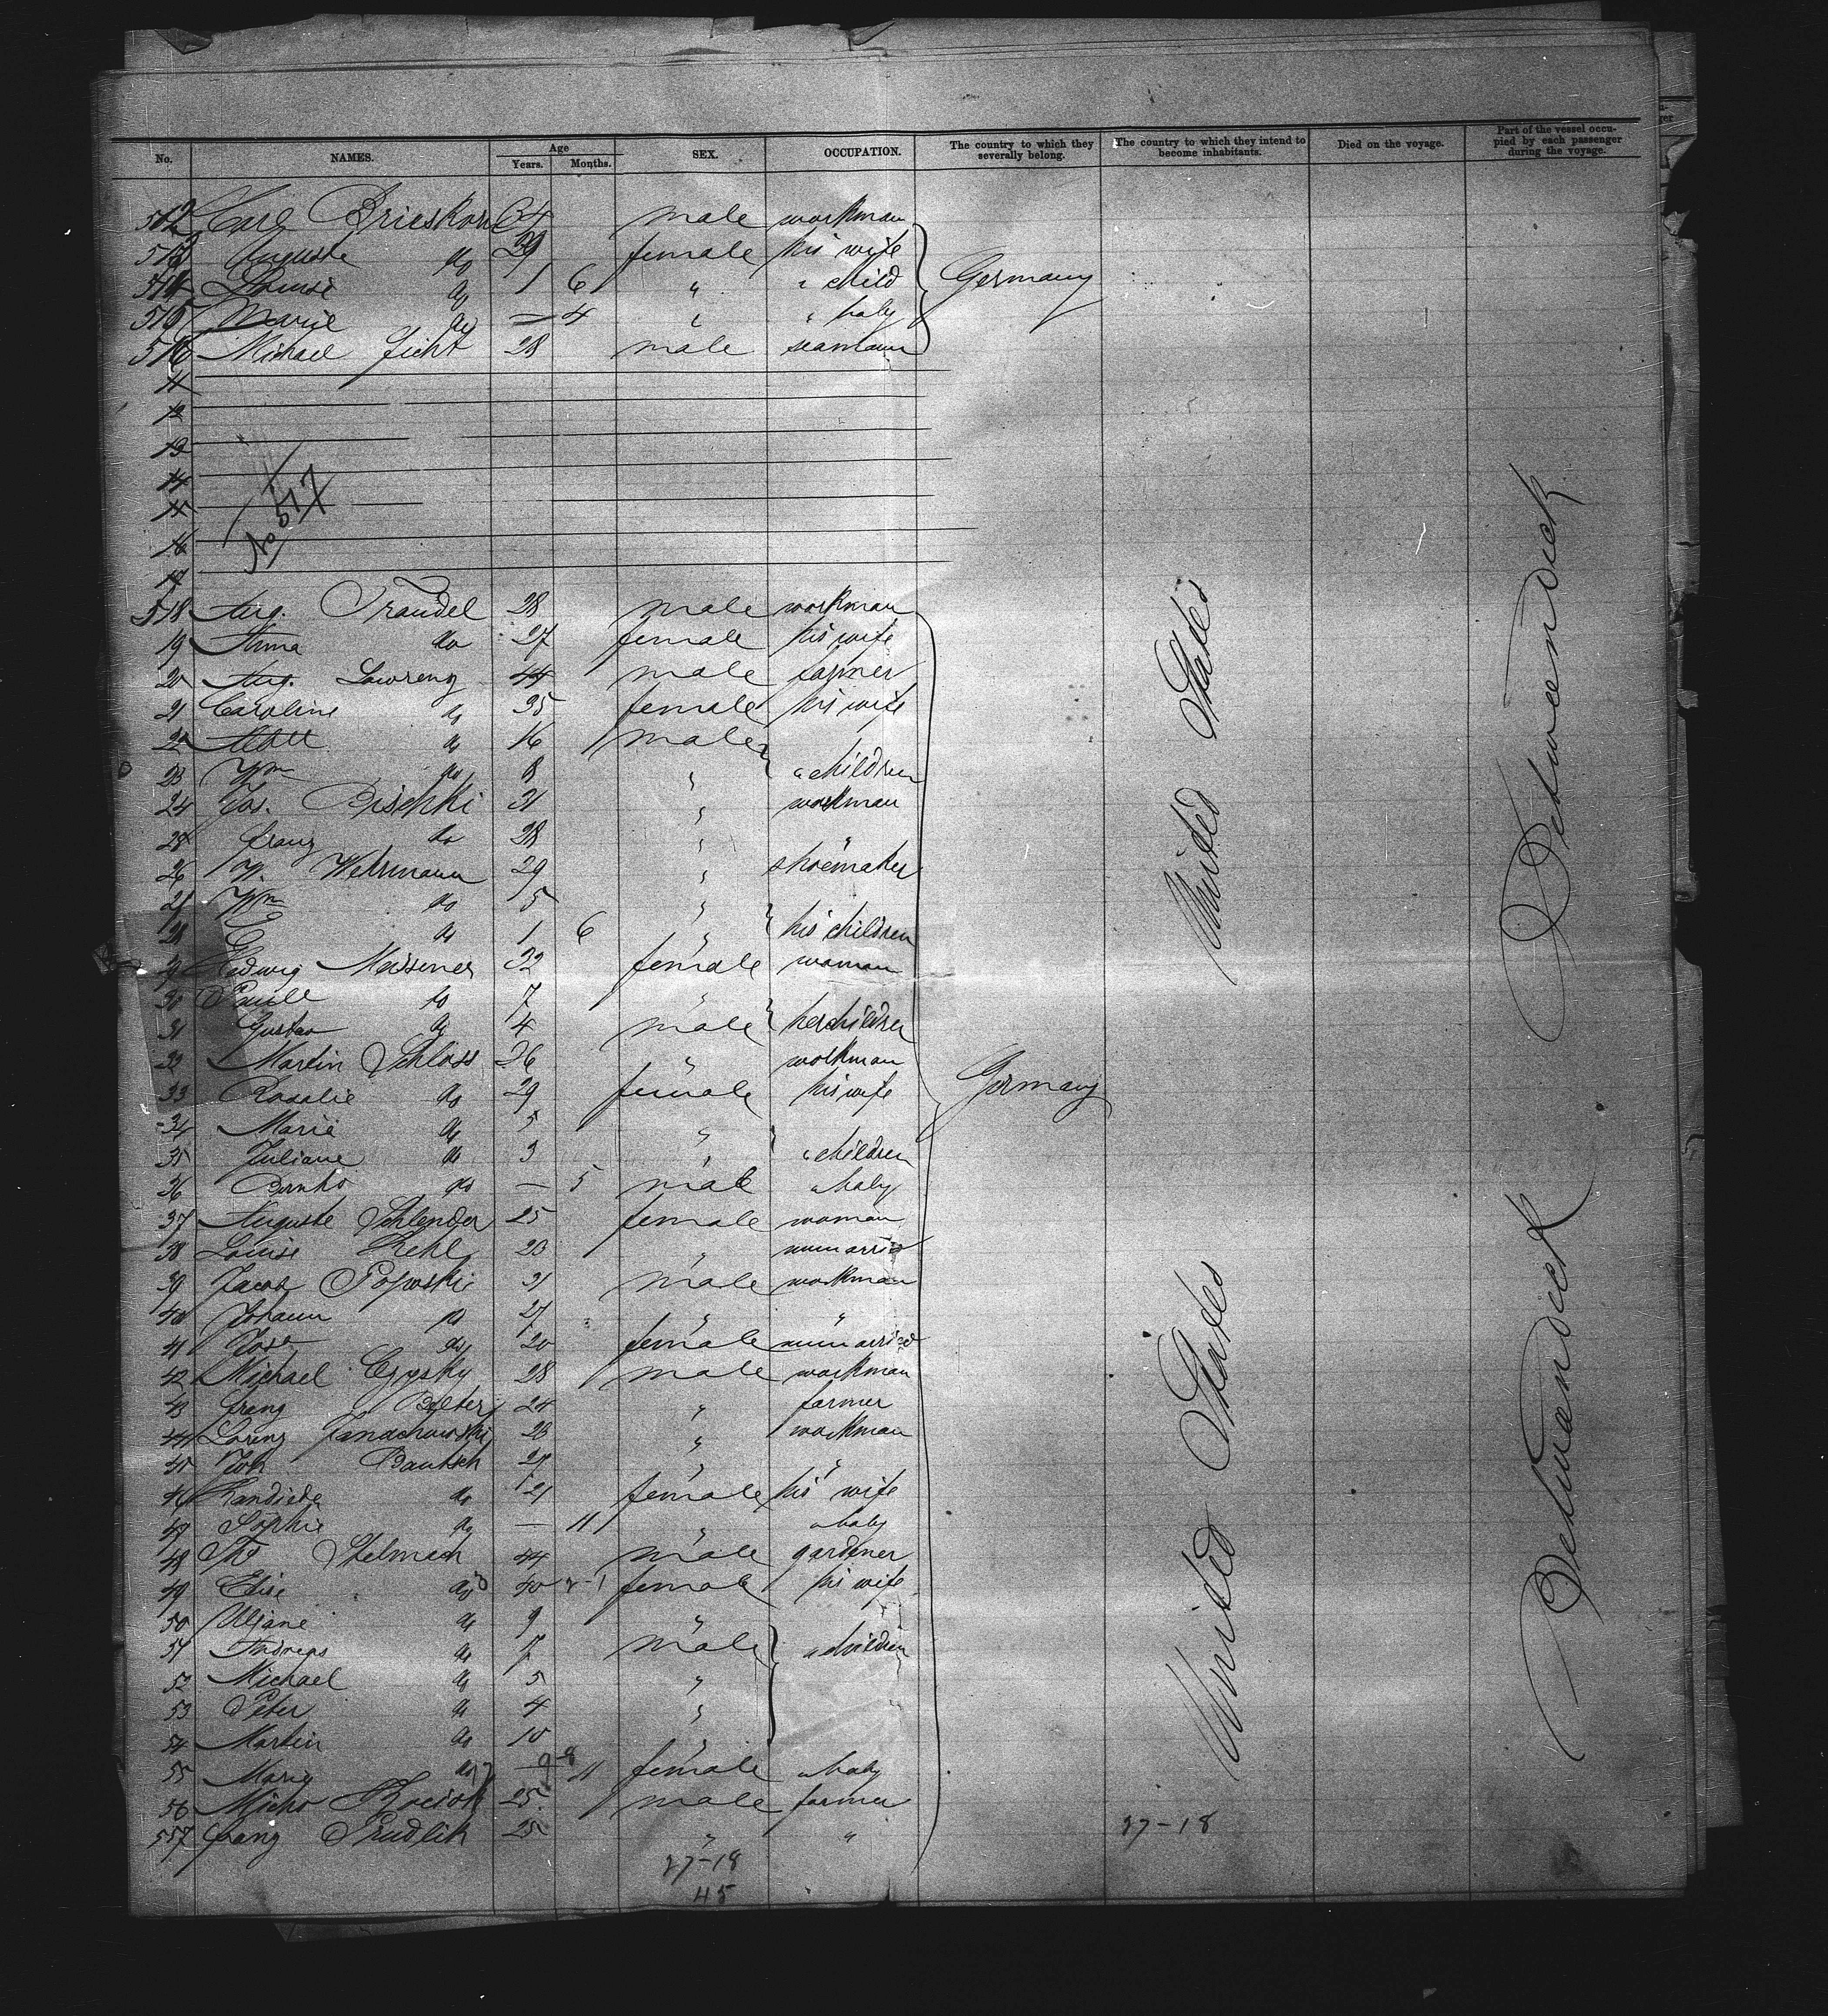 No. NAMES. Age Years. Months. SEX. OCCUPATION. The country to which they severally belong. The country to which they intend to become inhabitants. Died on the voyage. Part of the vessel occupied by each passenger during the voyage.
512 Carl Brieskorn 34 male workman
513 Auguste do 29 female his wife
514 Louise do 1 6 " " child Germany
515 Marie do — 4 " " baby
516 Michael Ficht 28 male seamann
11
12
13
14
15
No 517
16
17
518 Aug. Traudel 28 male workman
19 Anna do 27 female his wife
20 Aug. Lawrenz 44 male farmer
21 Caroline do 35 female his wife
22 do 16 male
23 Wm do 8 " " children
24 Jos. Bischki 31 " workman
25 Franz do 28 " "
26 W. Wehrmann 29 " shoemaker
27 Wm do 5 "
28 E do 1 6 " his children
29 Hedwig Meissner 32 female woman
30 do 7 "
31 Gustav do 4 male her children
32 Martin Schloss 36 " workman
33 Rosalie do 29 female his wife Germany
34 Marie do 5 "
35 Juliane do 3 " " children
36 do — 5 male " baby
37 Auguste Schlender 25 female woman
38 Louise Kehl 23 " unmarrid
39 Jacob Popowski 31 male workman
40 Johann do 27 " "
41 do 20 female unmarried
42 Michael Czysky 28 male workman
43 Franz Belter 24 " farmer
44 Lorenz Janachowski 23 " workman
45 Joh Bautsch 29 " "
46 do 21 female his wife
47 Sophie do — 11 " " baby
48 Stelmach 44 male gardener
49 Elise do 40 female his wife
50 do 9 "
51 Andreas do 7 male " children
52 Michael do 5 "
53 Peter do 4 "
54 Martin do 10 "
55 Marie do 11 female " baby
56 25 male farmer
557 Franz Prudlik 25 " "
27-18
45
27-18
United States
United States
Betweendeck
Betweendeck